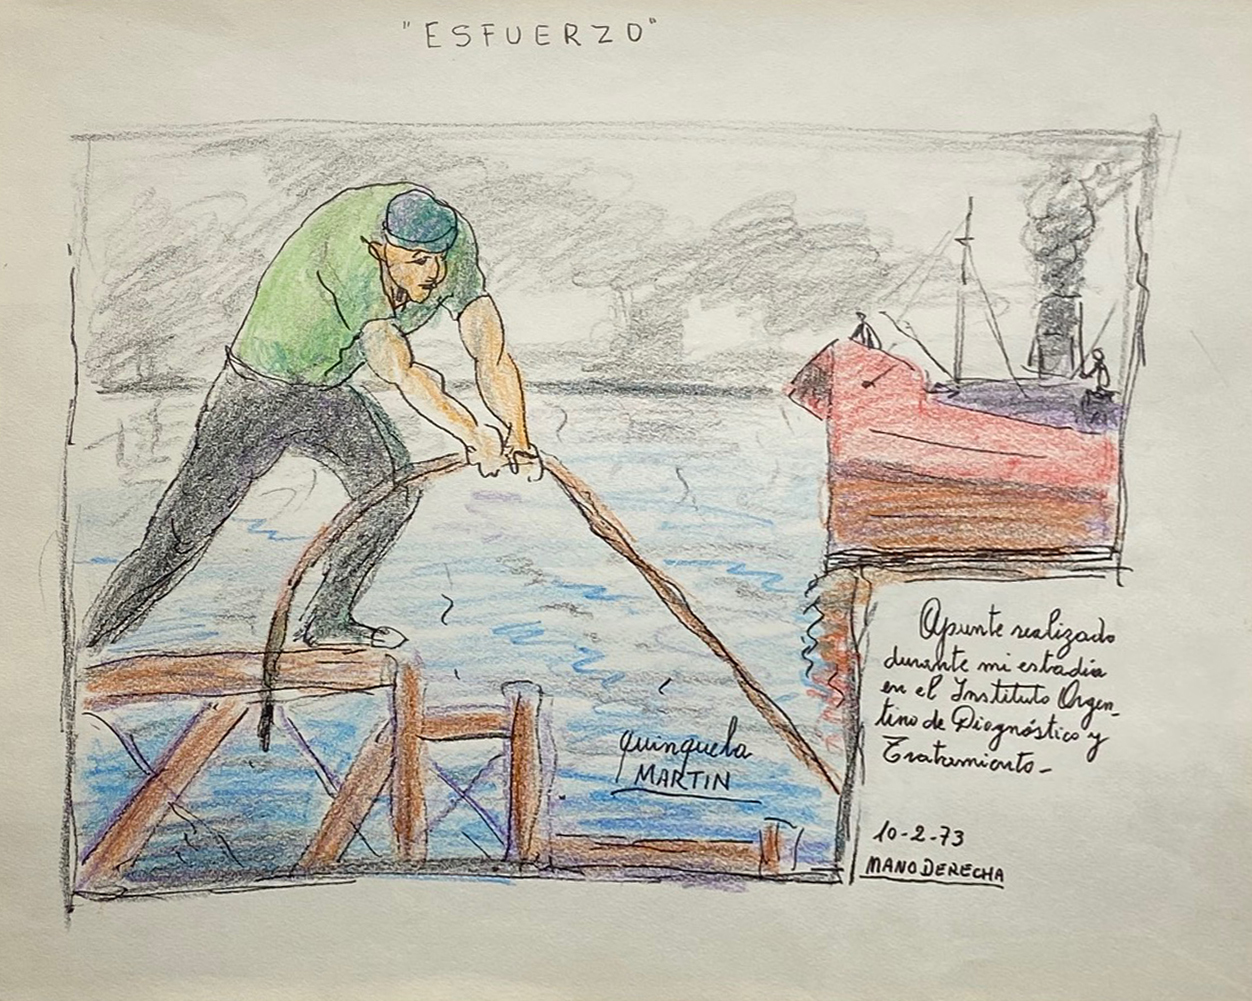 "ESFUERZO"
quinquela
MARTIN
Apunte realizado
durante mi estadia
en el Instituto Argen-
tino de Diagnóstico y
Tratamiento-
10-2-73
MANO DERECHA